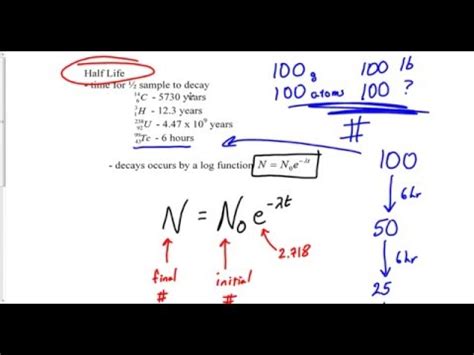 Half Life
- time for ½ sample to decay
¹⁴₆C - 5730 years
³₁H - 12.3 years
²³⁸₉₂U - 4.47 x 10⁹ years
⁹⁹₄₃Tc - 6 hours
- decays occurs by a log function N = N₀e^-λt
100 g 100 lb
100 atoms 100 ?
#
100
6hr
50
6hr
25
N = N₀e^-λt
2.718
final initial
# #